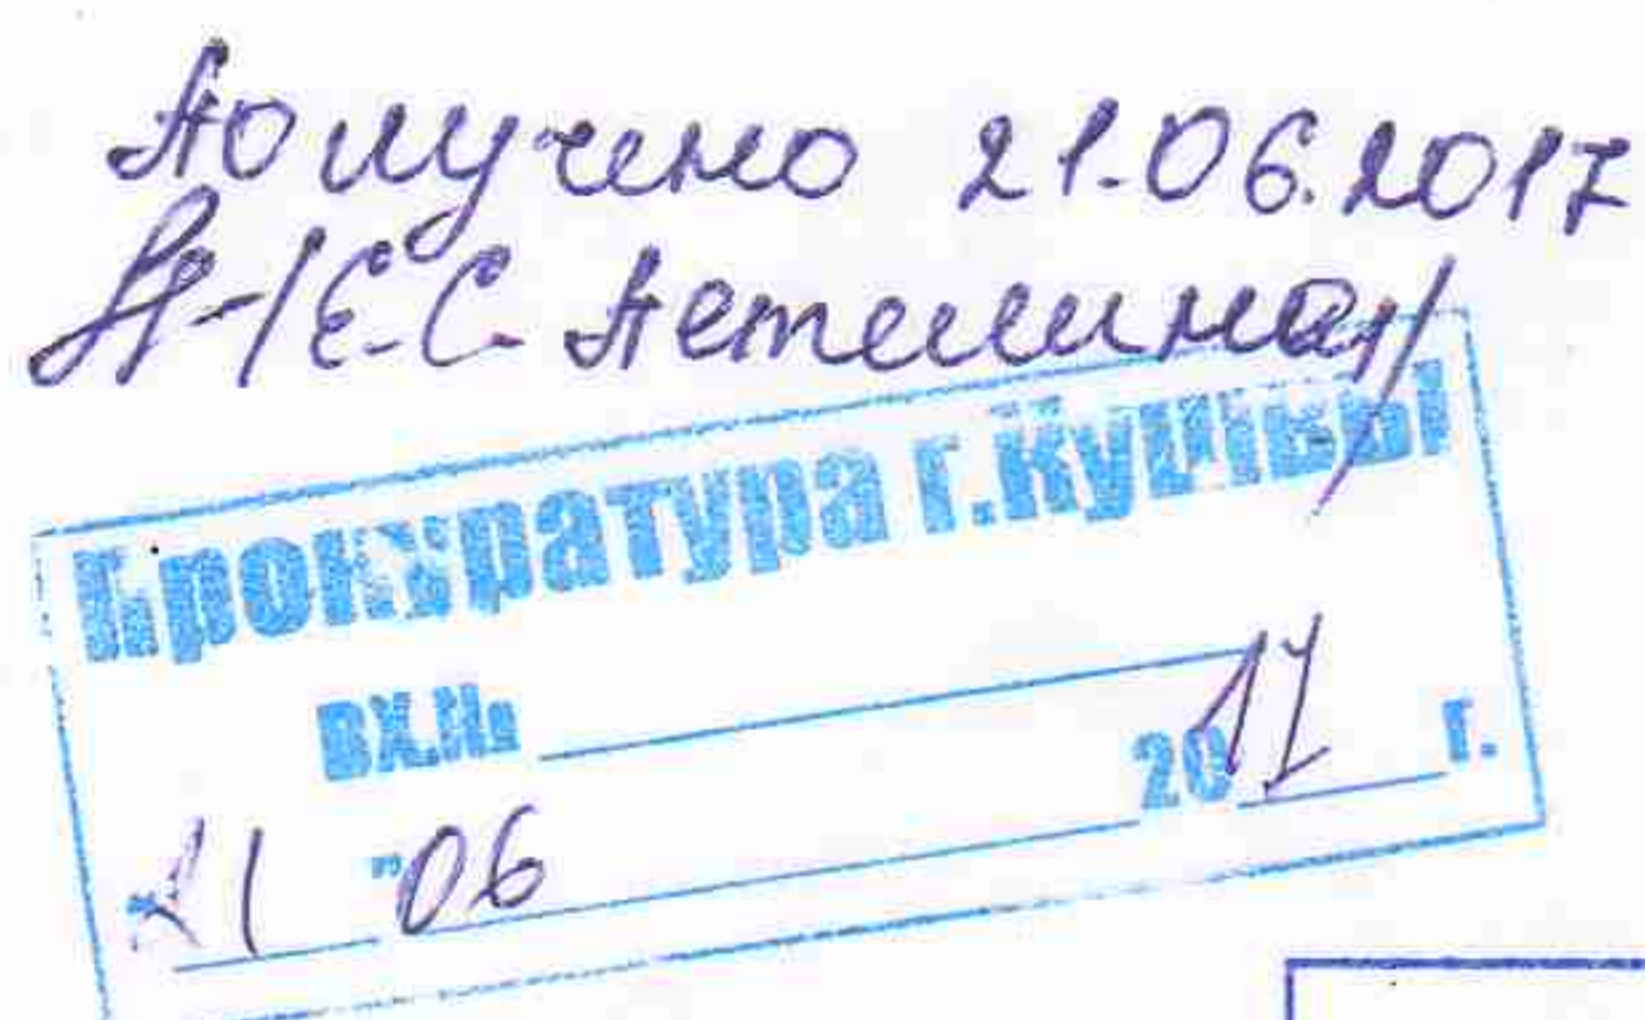 Получено 21.06.2017
/Е.С. Петелина/
Прокуратура г.Кушвы
ВХ.№
20 17 г.
"21" 06